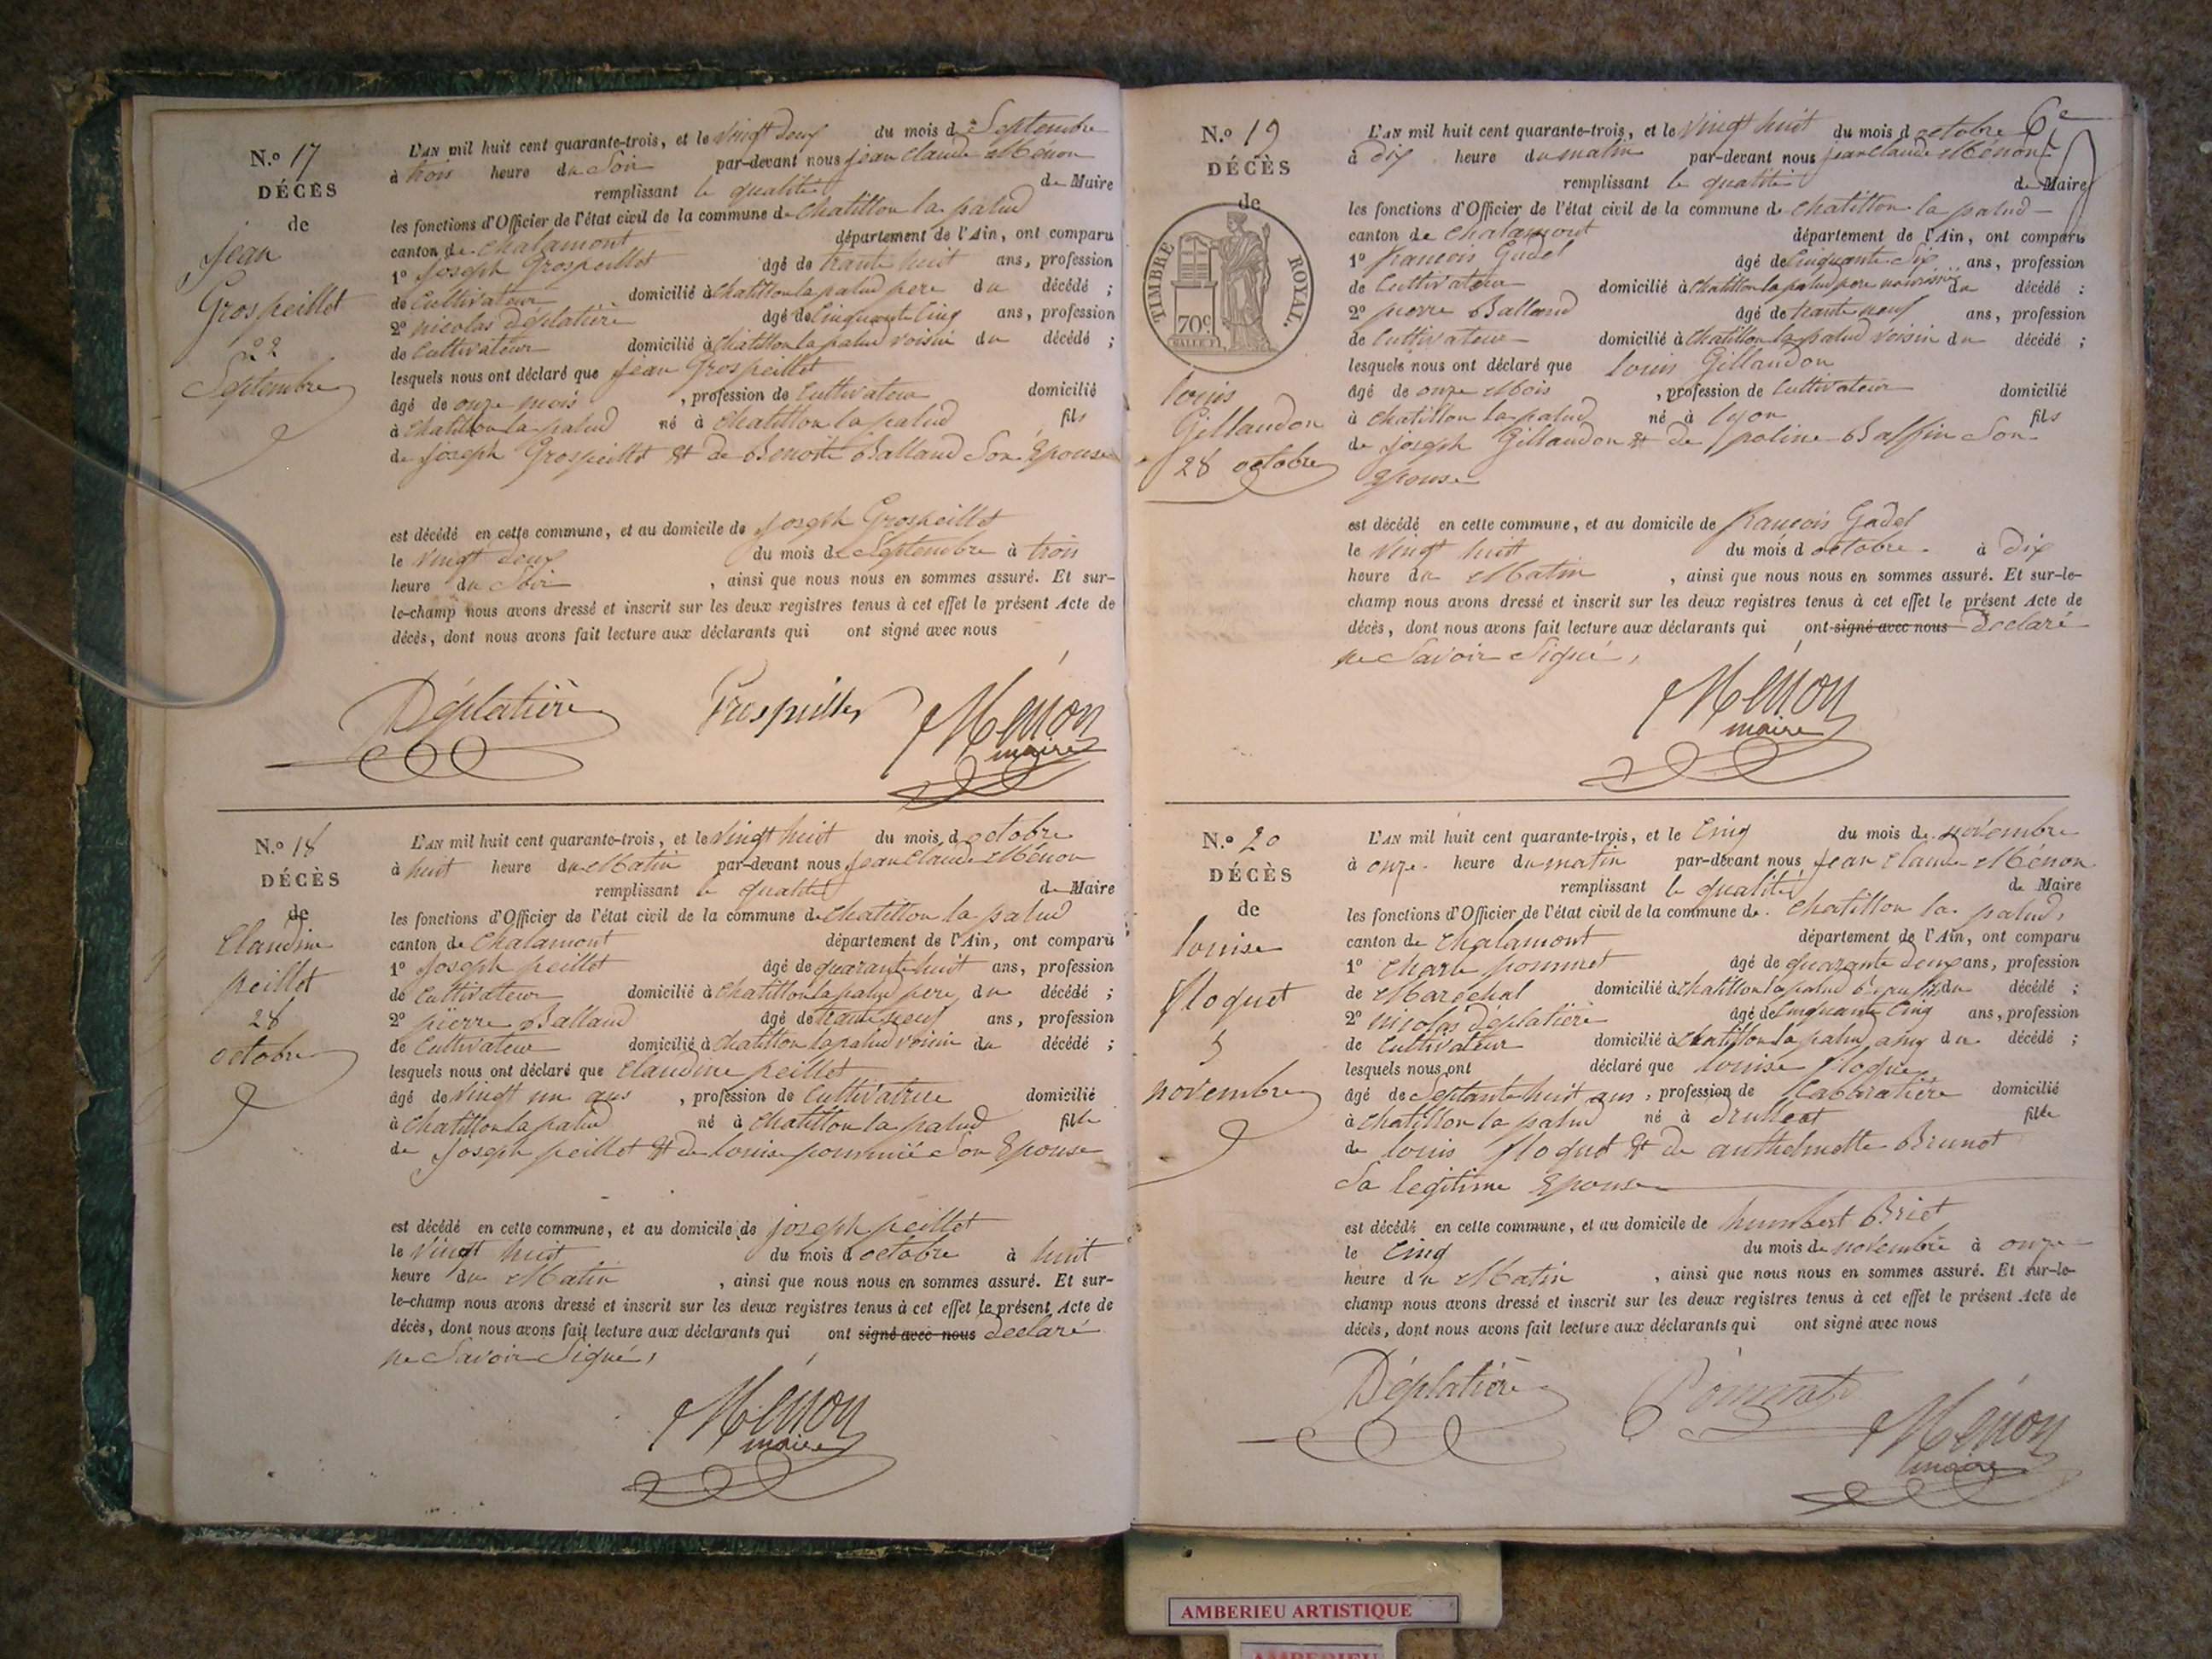 N.º 17
DÉCÈS
de
Jean
Grospeillet
22
Septembre
L'AN mil huit cent quarante-trois, et le vingt deux du mois de Septembre
à trois heure du Soir par-devant nous jean claude Ménon
remplissant la qualité de Maire
les fonctions d'Officier de l'état civil de la commune de chatillon la palud
canton de chalamont département de l'Ain, ont comparu
1º Joseph Grospeillet âgé de trante huit ans, profession
de Cultivateur domicilié à chatillon la palud pere du décédé ;
2º nicolas déplatière âgé de Cinquante Cinq ans, profession
de Cultivateur domicilié à chatillon la palud voisin du décédé ;
lesquels nous ont déclaré que jean Grospeillet
âgé de onze mois , profession de Cultivateur domicilié
à chatillon la palud né à chatillon la palud fils
de joseph Grospeillet & de Benoite Balland Son Epouse
est décédé en cette commune, et au domicile de joseph Grospeillet
le vingt deux du mois de Septembre à trois
heure du Soir , ainsi que nous nous en sommes assuré. Et sur-
le-champ nous avons dressé et inscrit sur les deux registres tenus à cet effet le présent Acte de
décès, dont nous avons fait lecture aux déclarants qui ont signé avec nous
Déplatière Grospeillet Ménon
maire
N.º 18
DÉCÈS
de
Claudine
peillet
28
octobre
L'AN mil huit cent quarante-trois, et le vingt huit du mois d octobre
à huit heure du Matin par-devant nous jean Claude Ménon
remplissant la qualité de Maire
les fonctions d'Officier de l'état civil de la commune de chatillon la palud
canton de Chalamont département de l'Ain, ont comparu
1º Joseph peillet âgé de quarante huit ans, profession
de Cultivateur domicilié à chatillon la palud pere du décédé ;
2º pierre Balland âgé de trante neuf ans, profession
de Cultivateur domicilié à chatillon la palud voisin du décédé ;
lesquels nous ont déclaré que Claudine peillet
âgé de vingt un ans , profession de Cultivatrice domicilié
à Chatillon la palud né à Chatillon la palud fille
de joseph peillet & de louise Son Epouse
est décédé en cette commune, et au domicile de joseph peillet
le vingt huit du mois d octobre à huit
heure du Matin , ainsi que nous nous en sommes assuré. Et sur-
le-champ nous avons dressé et inscrit sur les deux registres tenus à cet effet le présent Acte de
décès, dont nous avons fait lecture aux déclarants qui ont signé avec nous declaré
ne Savoir Signé,
Ménon
maire
6e
N.º 19
DÉCÈS
de
TIMBRE ROYAL.
70c
louis
Gillaudon
28 octobre
L'AN mil huit cent quarante-trois, et le vingt huit du mois d octobre
à dix heure du matin par-devant nous jean Claude Ménon
remplissant la qualité de Maire
les fonctions d'Officier de l'état civil de la commune de chatillon la palud
canton de chalamont département de l'Ain, ont comparu
1º francois Gadel âgé de Cinquante Six ans, profession
de Cultivateur domicilié à chatillon la palud pere du décédé ;
2º pierre Balland âgé de trante neuf ans, profession
de Cultivateur domicilié à chatillon la palud voisin du décédé ;
lesquels nous ont déclaré que louis Gillaudon
âgé de onze Mois , profession de Cultivateur domicilié
à chatillon la palud né à lyon fils
de joseph Gillaudon & de poline Baffin Son
Epouse
est décédé en cette commune, et au domicile de francois Gadel
le vingt huit du mois d octobre à dix
heure du Matin , ainsi que nous nous en sommes assuré. Et sur-le-
champ nous avons dressé et inscrit sur les deux registres tenus à cet effet le présent Acte de
décès, dont nous avons fait lecture aux déclarants qui ont signé avec nous declaré
ne Savoir Signé,
Ménon
maire
N.º 20
DÉCÈS
de
louise
floquet
5
novembre
L'AN mil huit cent quarante-trois, et le Cinq du mois de novembre
à onze heure du matin par-devant nous jean claude Ménon
remplissant la qualité de Maire
les fonctions d'Officier de l'état civil de la commune de chatillon la palud,
canton de chalamont département de l'Ain, ont comparu
1º Charle pommet âgé de quarante deux ans, profession
de Maréchal domicilié à chatillon la palud du décédé ;
2º nicolas déplatière âgé de Cinquante Cinq ans, profession
de Cultivateur domicilié à chatillon la palud amy du décédé ;
lesquels nous ont déclaré que louise floquet
âgé de Septante huit ans , profession de Cabaratière domicilié
à chatillon la palud né à fille
de louis floquet & de anthelmette Brunet
Sa légitime Epouse
est décédé en cette commune, et au domicile de humbert Briet
le Cinq du mois de novembre à onze
heure du Matin , ainsi que nous nous en sommes assuré. Et sur-le-
champ nous avons dressé et inscrit sur les deux registres tenus à cet effet le présent Acte de
décès, dont nous avons fait lecture aux déclarants qui ont signé avec nous
Déplatière Pommet Ménon
maire
AMBERIEU ARTISTIQUE
AMBERIEU